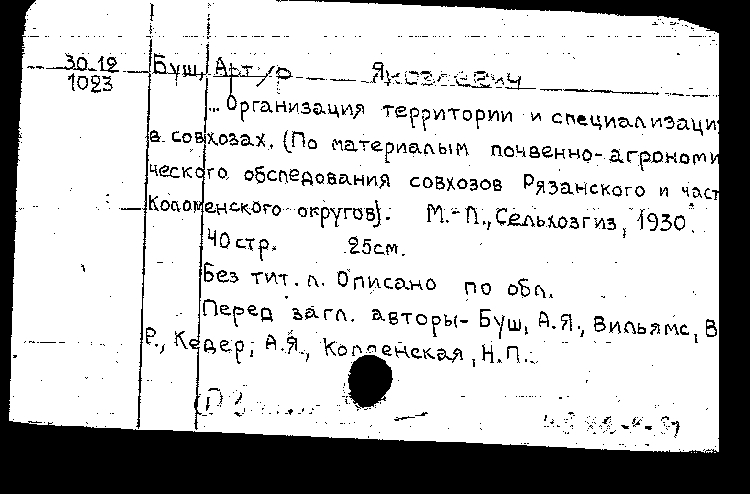 30.12
1023
Буш, Артур Яковлевич
... Организация территории и специализаци
в совхозах. (По материалым почвенно-агрономи
ческого обследования совхозов Рязанского и част
Коломенского округов). М.-Л., Сельхозгиз, 1930.
40 стр. 25см.
Без тит. л. Описано по обл.
Перед загл. авторы- Буш, А.Я., Вильямс, В
Р., Кедер, А.Я., Н.П.